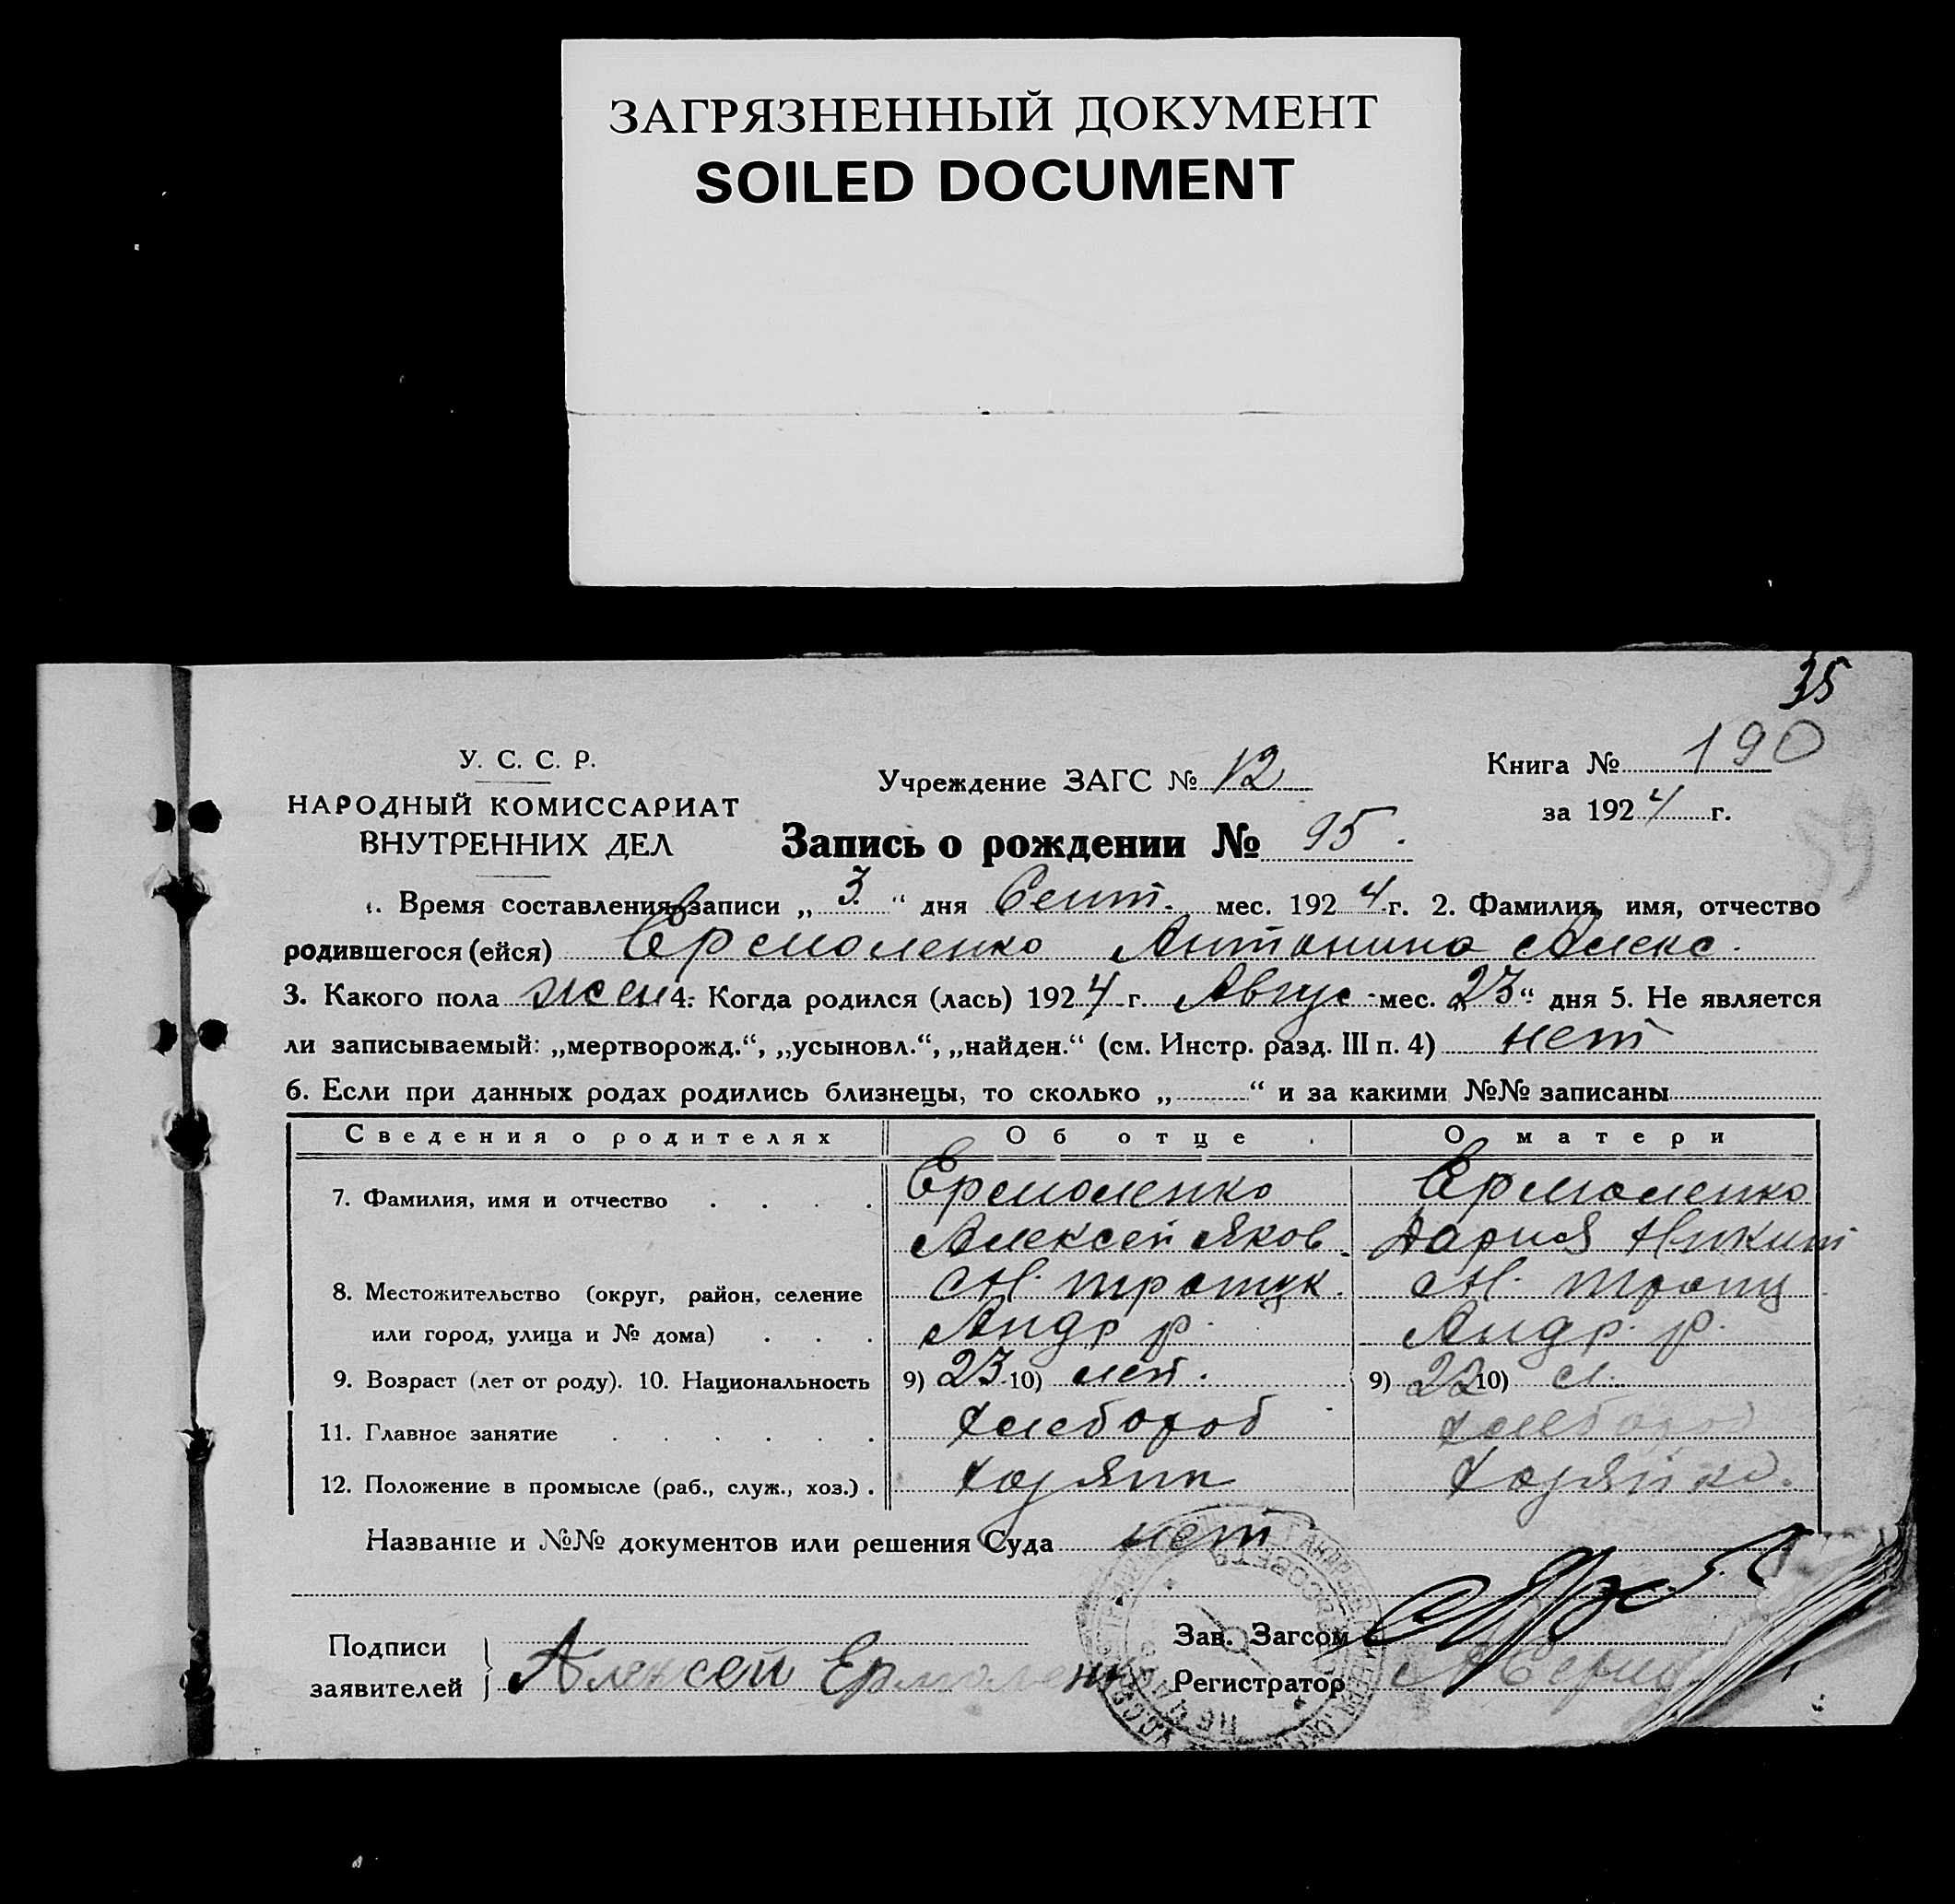 ЗАГРЯЗНЕННЫЙ ДОКУМЕНТ
SOILED DOCUMENT
35
У. С. С. Р.
НАРОДНЫЙ КОМИССАРИАТ
ВНУТРЕННИХ ДЕЛ
Учреждение ЗАГС № 12
Книга № 190
за 1924 г.
Запись о рождении № 95.
1. Время составления записи „3“ дня Сент. мес. 1924 г. 2. Фамилия, имя, отчество
родившегося (ейся) Ермоленко Антонина Алекс.
3. Какого пола жен 4. Когда родился (лась) 1924 г. Авгус мес. „23“ дня 5. Не является
ли записываемый: „мертворожд.“, „усыновл.“, „найден.“ (см. Инстр. разд. III п. 4) нет
6. Если при данных родах родились близнецы, то сколько „ “ и за какими №№ записаны
Сведения о родителях Об отце О матери
7. Фамилия, имя и отчество Ермоленко Ермоленко
Алексей Яков. Дария Никит
8. Местожительство (округ, район, селение Н. Троицк. Н. Троиц
или город, улица и № дома) Андр р. Андр. р.
9. Возраст (лет от роду). 10. Национальность 9) 23 10) 9) 22 10)
11. Главное занятие хлебороб хлебороб
12. Положение в промысле (раб., служ., хоз.) хозяин хозяйка.
Название и №№ документов или решения Суда нет
Подписи
заявителей
Алексей Ермоленко
Зав. Загсом
Регистратор